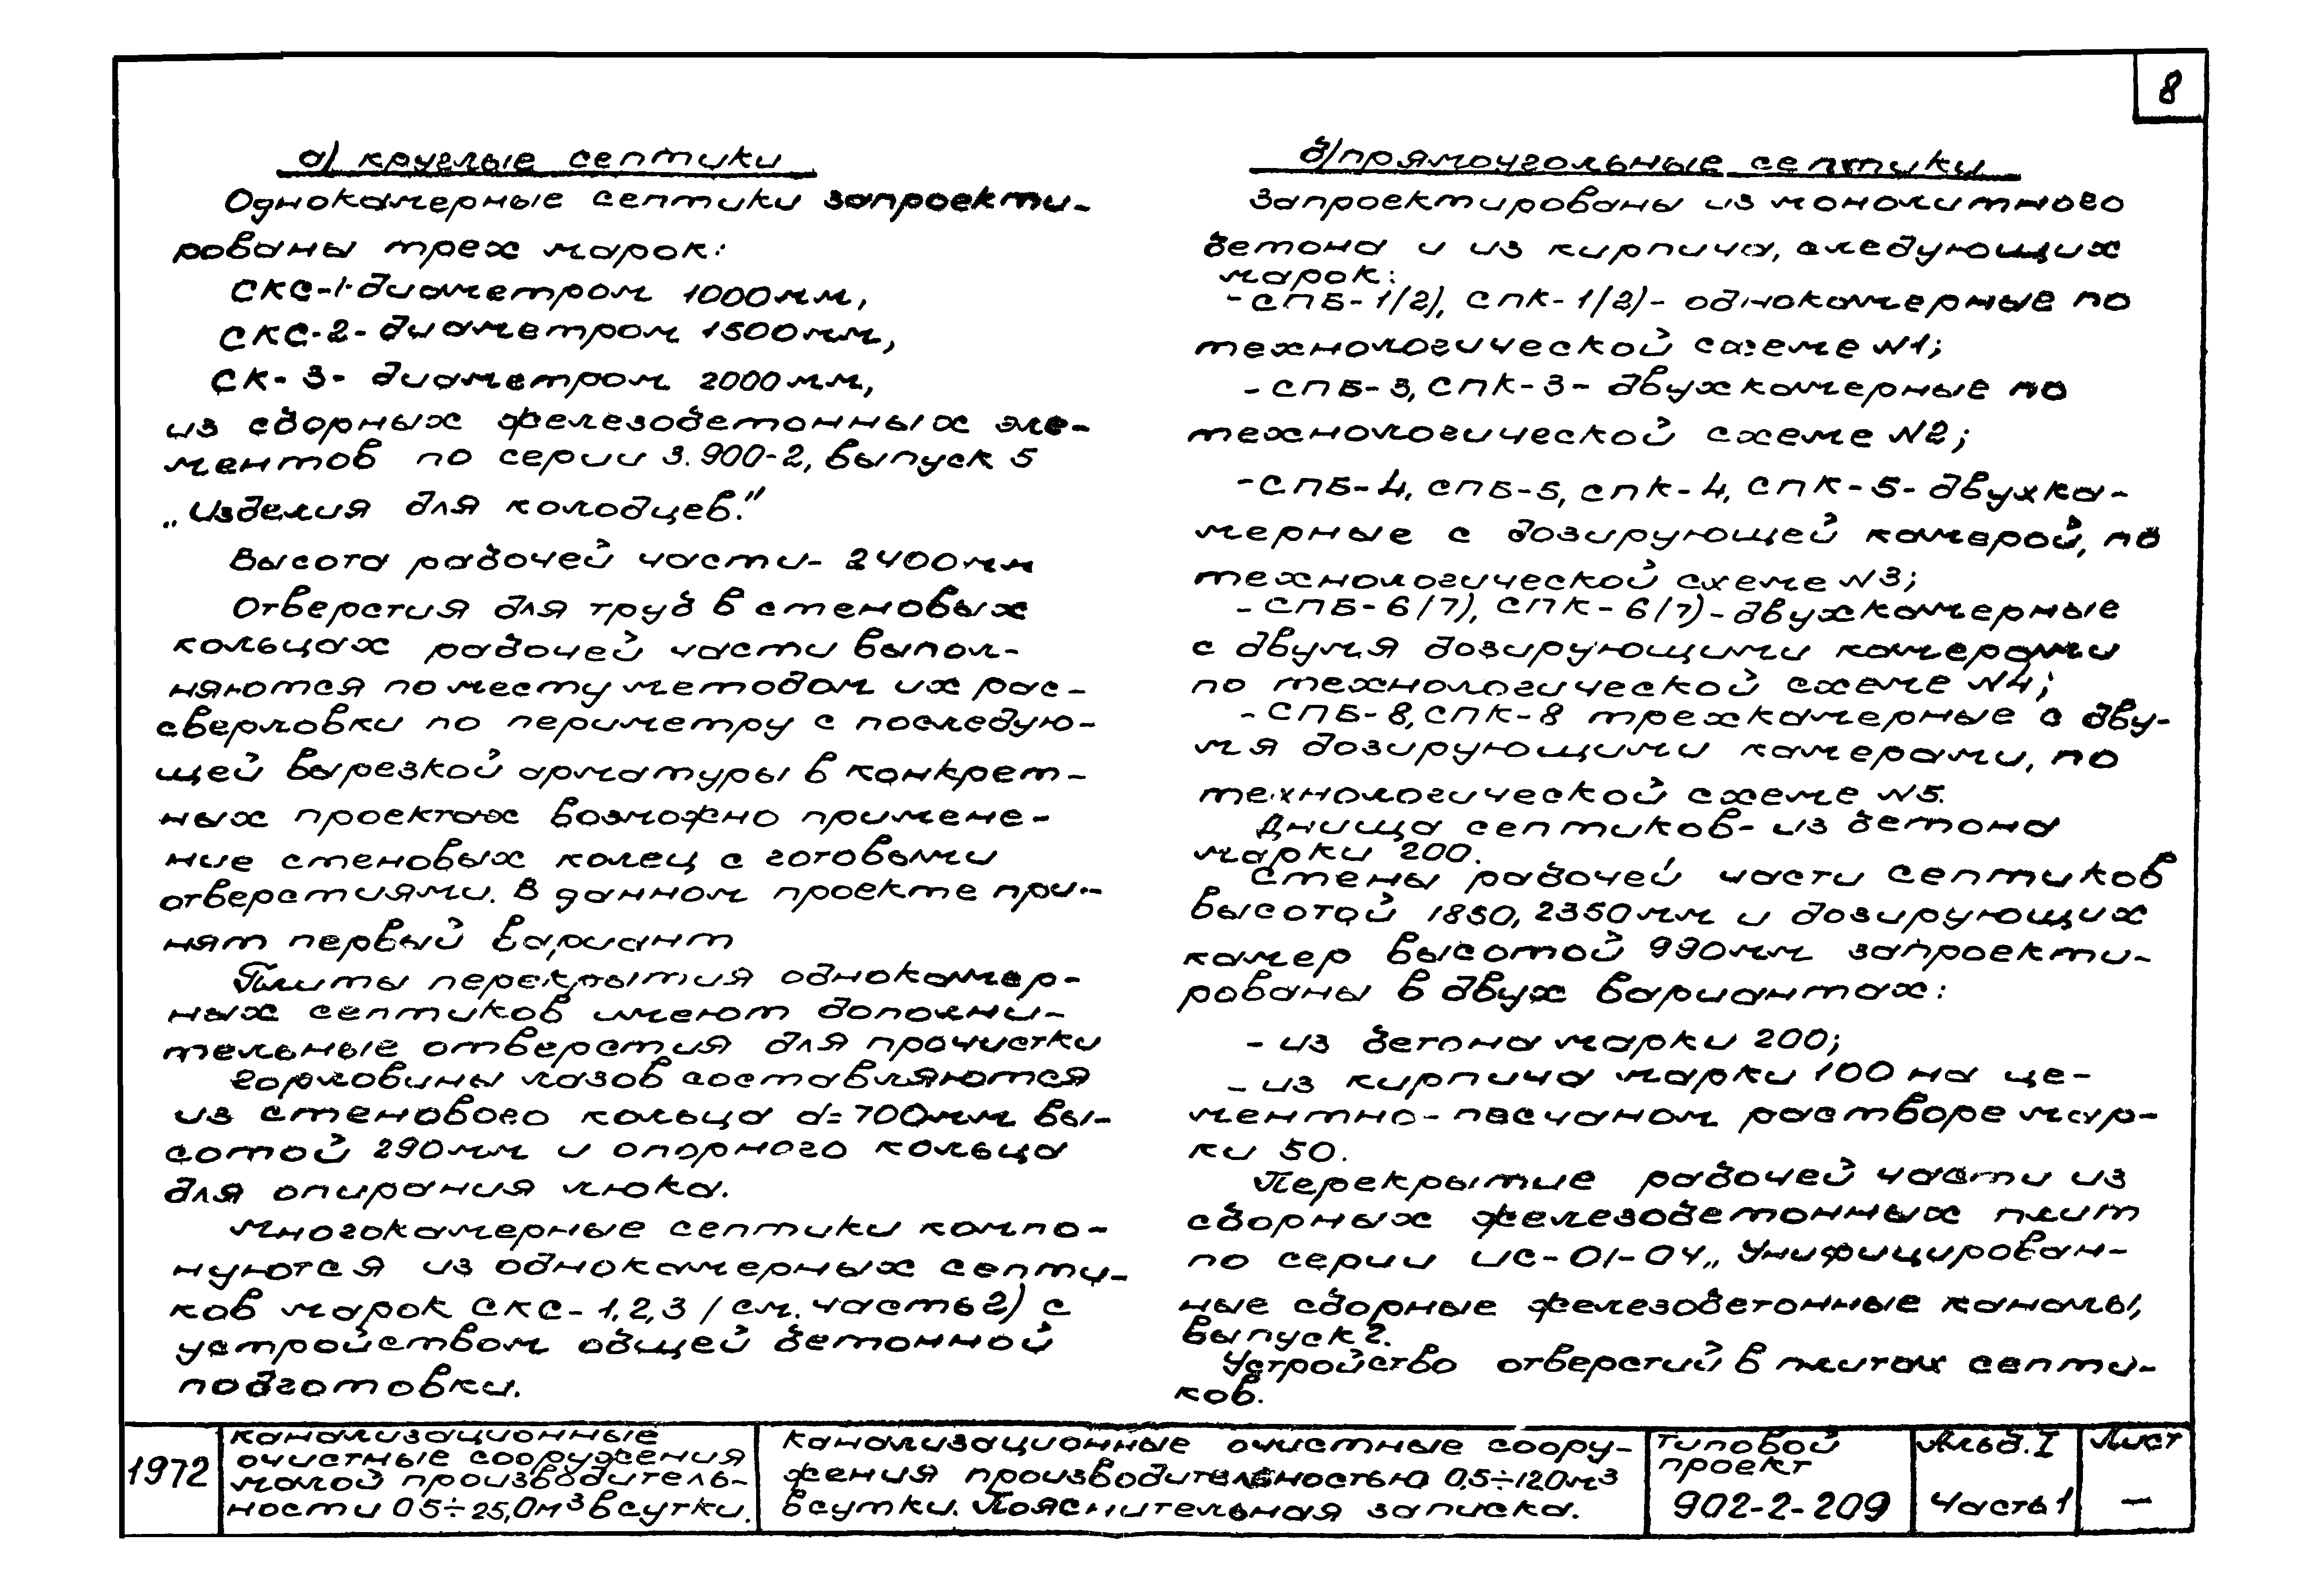 8
а) круглые септики
Однокамерные септики запроекти-
рованы трех марок:
СКС-1-диаметром 1000мм,
СКС-2-диаметром 1500мм,
СК-3- диаметром 2000мм,
из сборных железобетонных эле-
ментов по серии 3.900-2, выпуск 5
„Изделия для колодцев."
Высота рабочей части- 2400мм
Отверстия для труб в стеновых
кольцах рабочей части выпол-
няются по месту методом их рас-
сверловки по периметру с последую-
щей вырезкой арматуры в конкрет-
ных проектах возможно примене-
ние стеновых колец с готовыми
отверстиями. В данном проекте при-
нят первый вариант
Плиты перекрытия однокамер-
ных септиков имеют дополни-
тельные отверстия для прочистки
Горловины лазов составляются
из стенового кольца d=700мм вы-
сотой 290мм и опорного кольца
для опирания люка.
Многокамерные септики компо-
нуются из однокамерных септи-
ков марок СКС-1,2,3 /см. часть 2) с
устройством общей бетонной
подготовки.
б)прямоугольные септики
Запроектированы из монолитного
бетона и из кирпича, следующих
марок:
-СПБ-1/2), СПК-1/2)- однокамерные по
технологической схеме N1;
-СПБ-3, СПК-3- двухкамерные по
технологической схеме N2;
-СПБ-4, СПБ-5, СПК-4, СПК-5- двухка-
мерные с дозирующей камерой, по
технологической схеме N3;
-СПБ-6/7), СПК-6/7)-двухкамерные
с двумя дозирующими камерами
по технологической схеме N4;
-СПБ-8, СПК-8 трехкамерные с дву-
мя дозирующими камерами, по
технологической схеме N5.
Днища септиков- из бетона
марки 200.
Стены рабочей части септиков
высотой 1850, 2350мм и дозирующих
камер высотой 990мм запроекти-
рованы в двух вариантах:
- из бетона марки 200;
- из кирпича марки 100 на це-
ментно-песчаном растворе мар-
ки 50.
Перекрытие рабочей части из
сборных железобетонных плит
по серии ИС-01-04„ Унифицирован-
ные сборные железобетонные каналы,
выпуск 2.
Устройство отверстий в плитах септи-
ков.
1972
канализационные
очистные сооружения
малой производитель-
ности 0,5÷25,0м³ в сутки.
Канализационные очистные соору-
жения производительностью 0,5÷12,0м³
в сутки. Пояснительная записка.
Типовой
проект
902-2-209
Альб. I
Часть 1
Лист
—